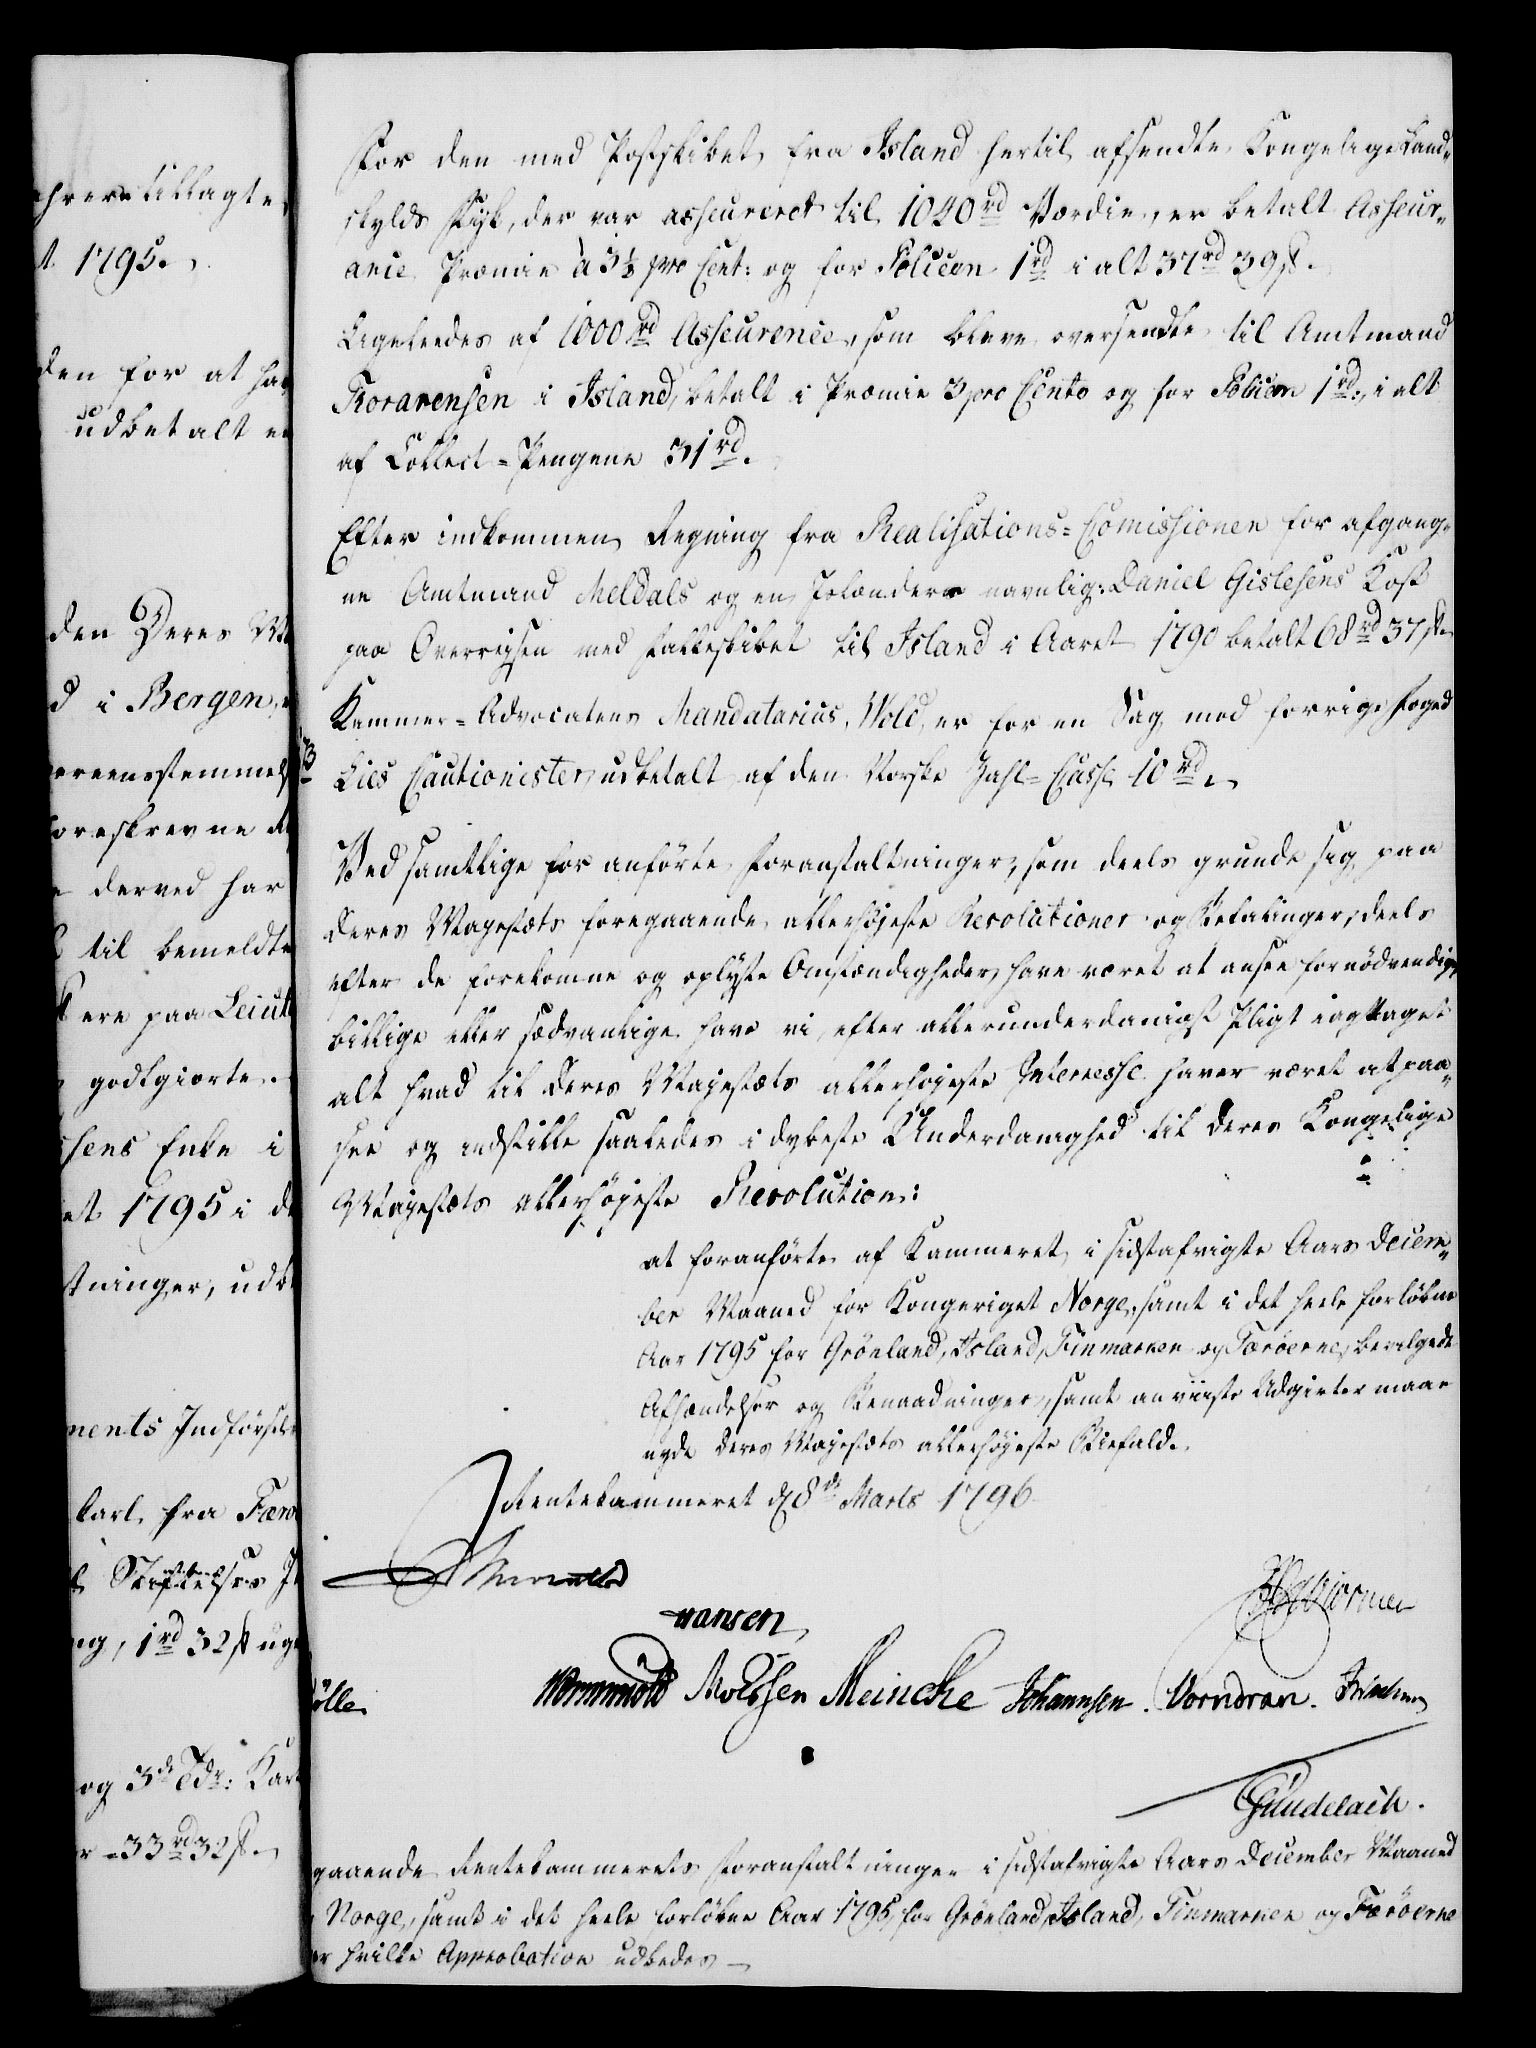 hrere tillagte
t 1795.
den for at ha
udbetalt e
den Deres Ma
d i Bergen,
vereensstemmels
foreskrevne R
derved har
til bemeldte
ere paa Leiut
godtgiorte.
sens Enke i
et 1795 i d
tninger, udb
ments Indførsel
karl fra Færø
Stiftelses
ng, 1 rd 32 ß ug
og 3de
33 rd 32 ß.
For den med Postskibet fra Island hertil afsendte Kongelige Land-
skylds Fisk, der var asseureret til 1040 rd Værdie, er betalt Asseur-
ance Præmie à 3½ pro Cent: og for Policen 1 rd i alt 37 rd 39 ß.
Ligeledes af 1000 rd Asseurence, som bleve oversendte til Amtmand
Thorarensen i Island, betalt i Præmie 3 pro Cento og for Policen 1 rd, i alt
af Collect-Pengene 31 rd.
Efter indkommen Regning fra Realisations-Comissionen for afgang-
ne Amtmand Meldals og en Islænders navnlig: Daniel Gislesens Kost
paa Overreisen med Falkeskibet til Island i Aaret 1790 betalt 68 rd 37 ß.
Kammer-Advocatens Mandatarius, Wold, er for en Sag mod forrige Foged
Lies Cautionister, udbetalt af den Norske Zahl-Casse 10 rd.
Ved samtlige foranførte Foranstaltninger, som deels grunde sig paa
Deres Majestæts foregaaende allerhøjeste Resolutioner og Befalinger, deels
efter de forekomne og oplyste Omstændigheder have været at ansee fornødvendige,
billige eller sædvanlige have vi, efter allerunderdanigst Pligt iagttaget
alt hvad til Deres Majestæts allerhøjeste Interesse haver været at paa-
see og indstille saaledes i dybeste Underdanighed til Deres Kongelige
Majestæts allerhøjeste Resolution:
at foranførte af Kammeret i sidstafvigte Aars Decem-
ber Maaned for Kongeriget Norge, samt i det heele forløbne
Aar 1795 for Grønland, Island, Finmarken og Færøerne, bevilgede
Afhændelser og Benaadninger, samt anviiste Udgivter maae
nyde Deres Majestæts allerhøjeste Biefald.
Rentekammeret d 8de Marts 1796
Hansen
Wormskiold Moessen Meincke Johannsen. Vorndran.
ölle
Güudelach.
gaaende Rentekammerets Foranstaltninger i sidstafvigte Aars December Maaned
Norge, samt i det heele forløbne Aar 1795, for Grønland, Island, Finmarken og Færöerne
er hvilke Approbation udbedes